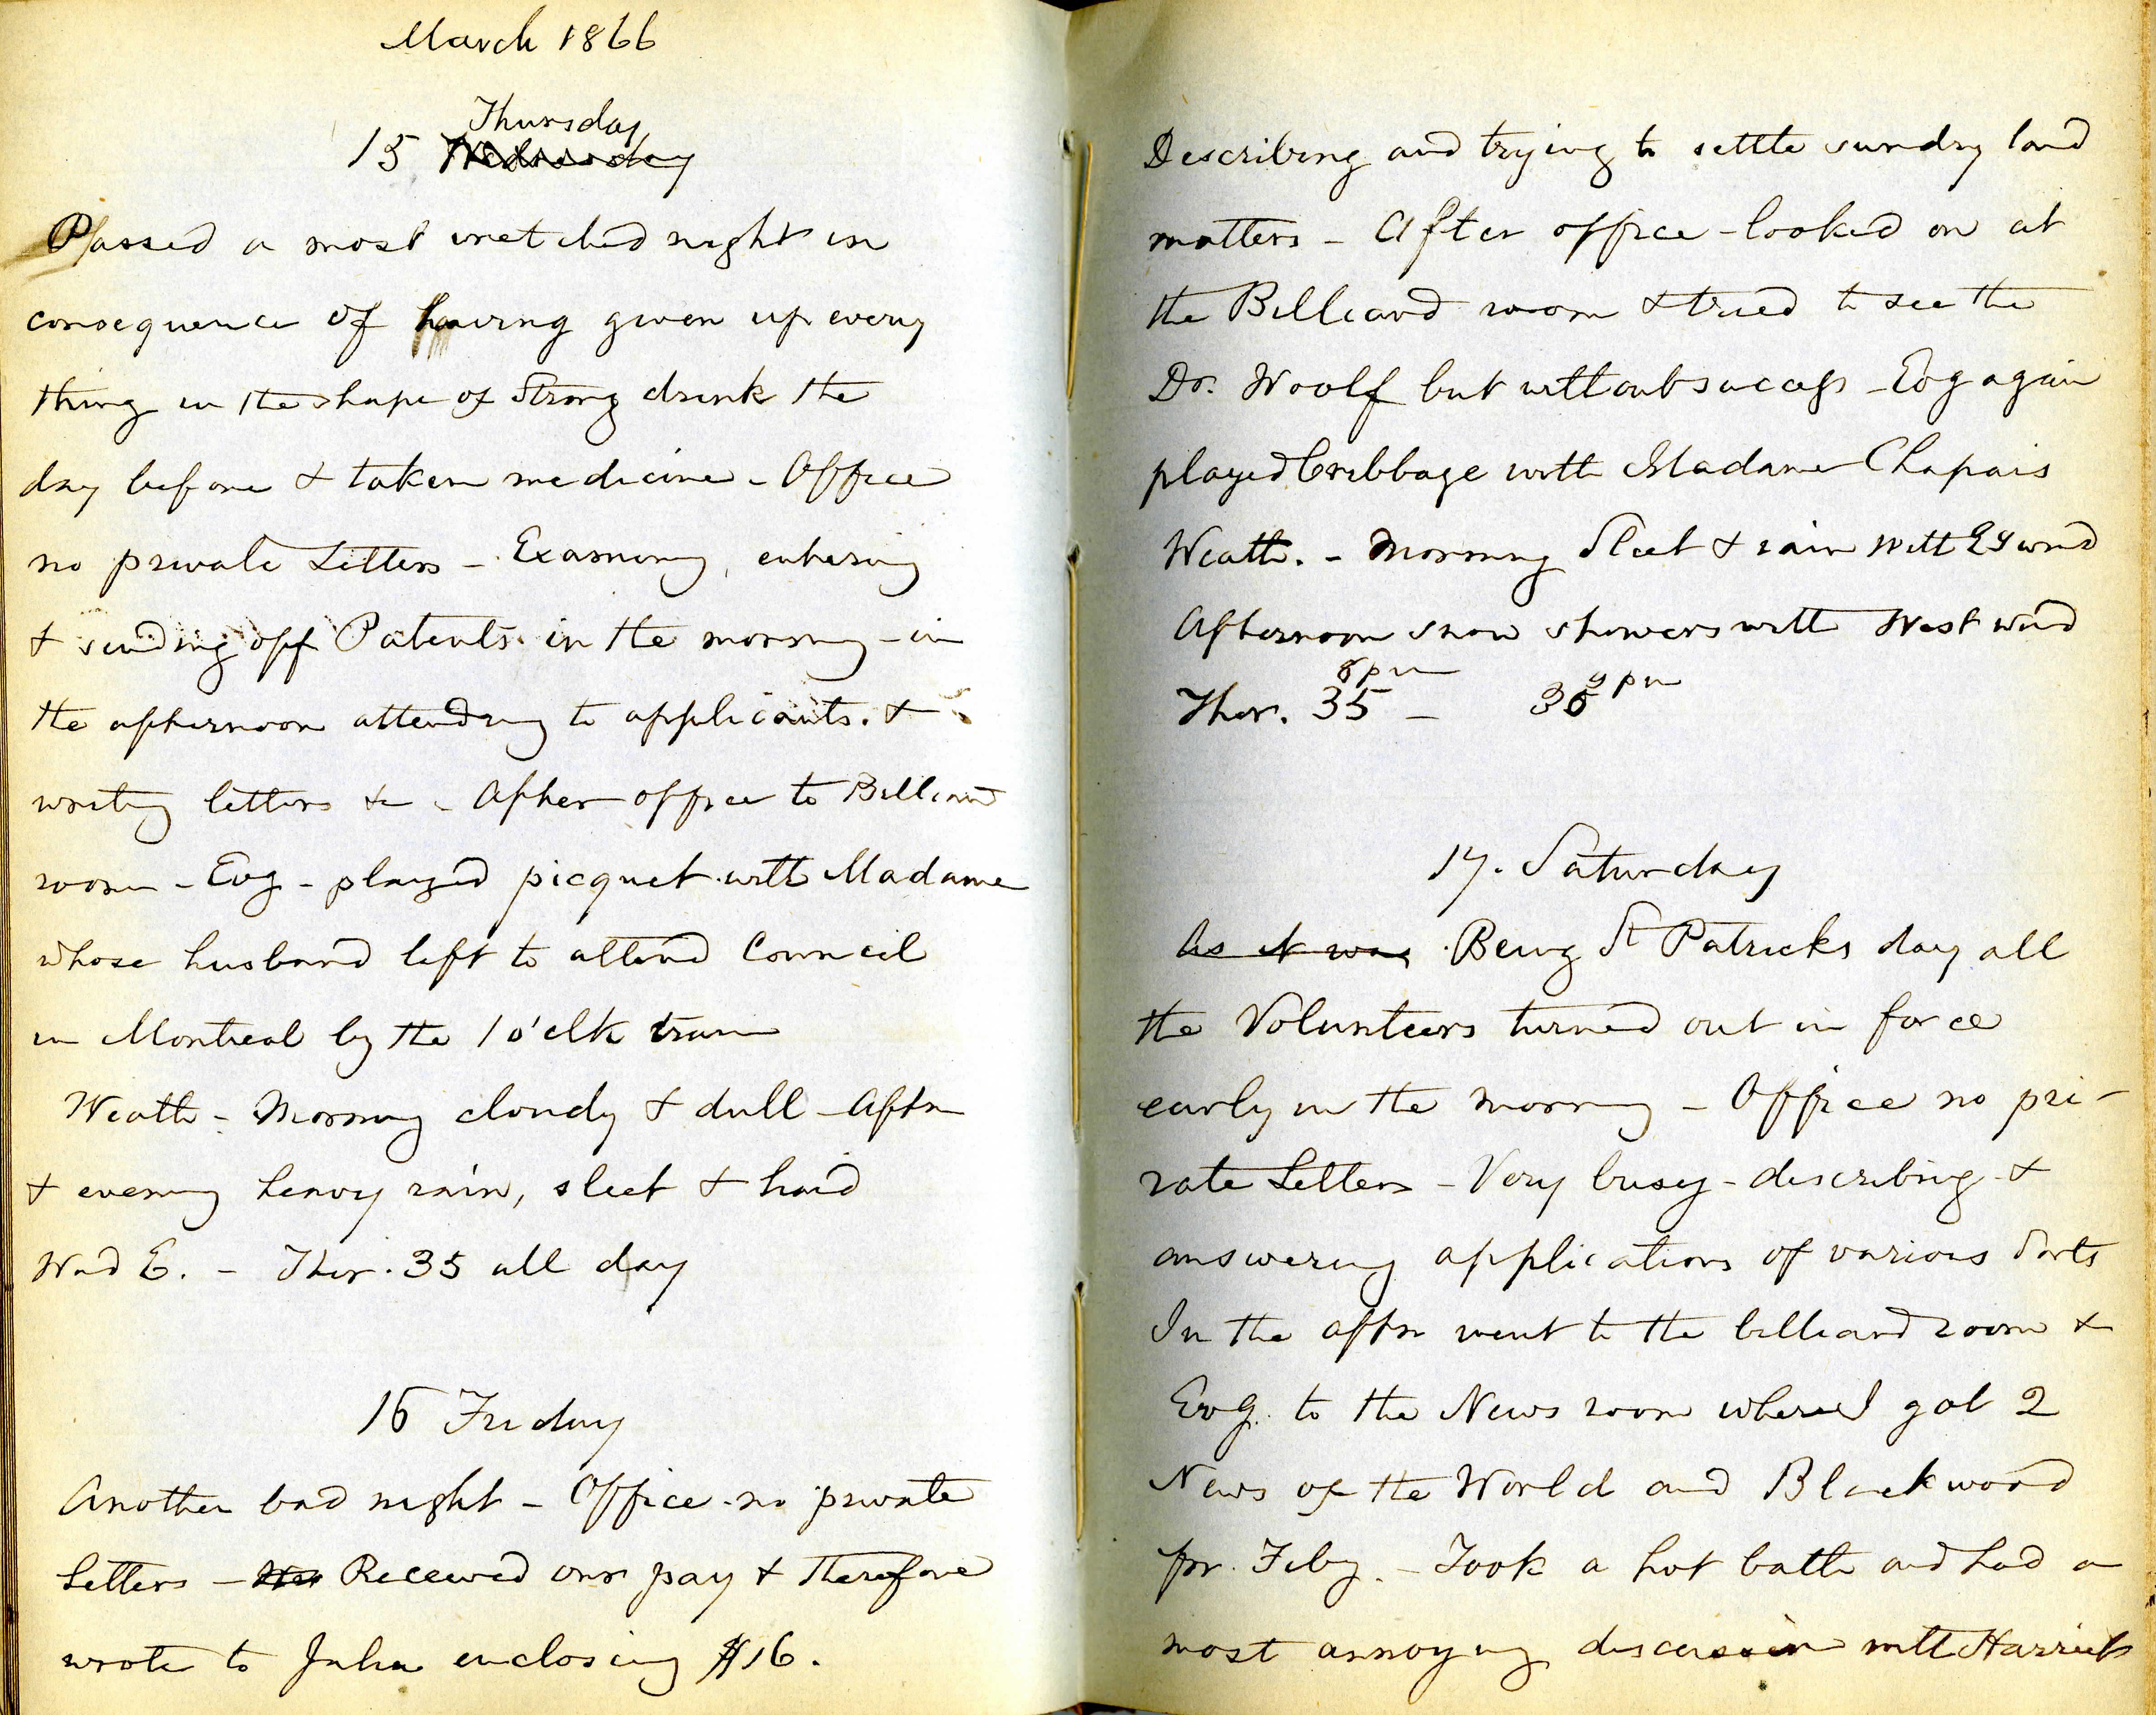 March 1866
Thursday
15 Wednesday
Passed a most wretched night in
consequence of having given up every
thing in the shape of Strong drink the
day before & taken medicine - Office
no private Letters - Examining, entering
& sending off Patents in the morning - in
the afternoon attending to applicants. &
writing letters &c - After office to Billiard
room - Evg - played picquet with Madame
whose husband left to attend Council
in Montreal by the 1 o'clk train
Weath - Morning cloudy & dull - Aftn
& evening heavy rain, sleet & hard
Wind E. - Ther. 35 all day
16 Friday
Another bad night - Office - no private
Letters - Received our pay & therefore
wrote to Julia enclosing $16.
Describing and trying to settle sundry land
matters - After office - looked on at
the Billiard room & tried to see the
Dr. Woolf but without success - Evg again
played Cribbage with Madame Chapais
Weath. - Morning Sleet & rain with Ey wind
Afternoon snow showers with West wind
8 pm 9 pm
Ther. 35 - 36
17. Saturday
As it was Being St Patricks day all
the Volunteers turned out in force
early in the morning - Office no pri-
vate Letters - Very busy - describing &
answering applications of various Sorts
In the aftn went to the billiard room &
Evg. to the News room where I got 2
News of the World and Blackwood
for Feby. - Took a hot bath and had a
most annoying discussion with Harriet